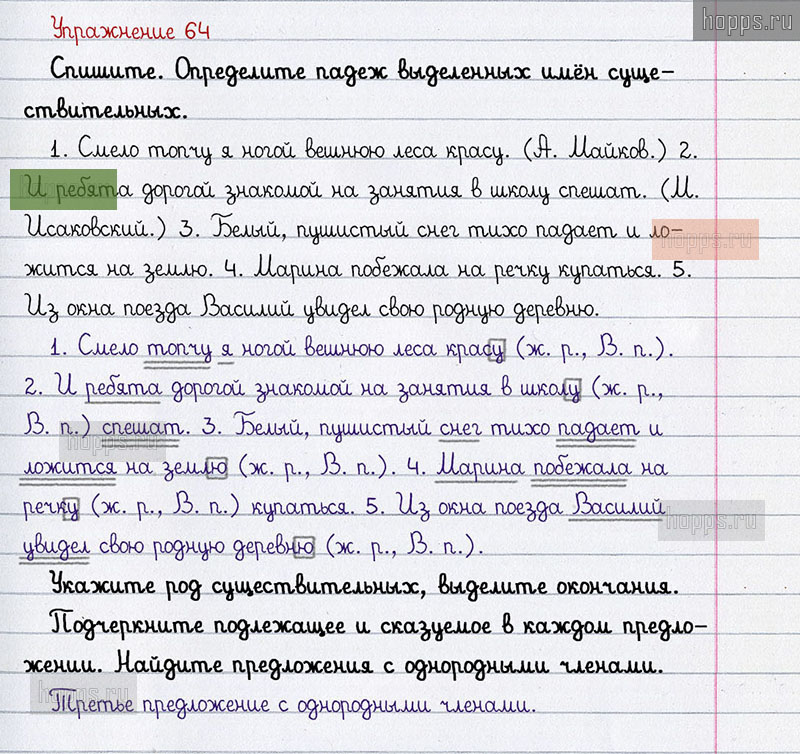 hopps.ru
Упражнение 64
Спишите. Определите падеж выделенных имён суще-
ствительных.
1. Смело топчу я ногой вешнюю леса красу. (А. Майков.) 2.
И ребята дорогой знакомой на занятия в школу спешат. (М.
Исаковский.) 3. Белый, пушистый снег тихо падает и ло-
hopps.ru
жится на землю. 4. Марина побежала на речку купаться. 5.
Из окна поезда Василий увидел свою родную деревню.
1. Смело топчу я ногой вешнюю леса красу (ж. р., В. п.).
2. И ребята дорогой знакомой на занятия в школу (ж. р.,
В. п.) спешат. 3. Белый, пушистый снег тихо падает и
hopps.ru
ложится на землю (ж. р., В. п.). 4. Марина побежала на
речку (ж. р., В. п.) купаться. 5. Из окна поезда Василий
hopps.ru
увидел свою родную деревню (ж. р., В. п.).
Укажите род существительных, выделите окончания.
Подчеркните подлежащее и сказуемое в каждом предло-
жении. Найдите предложения с однородными членами.
hopps.ru
Третье предложение с однородными членами.